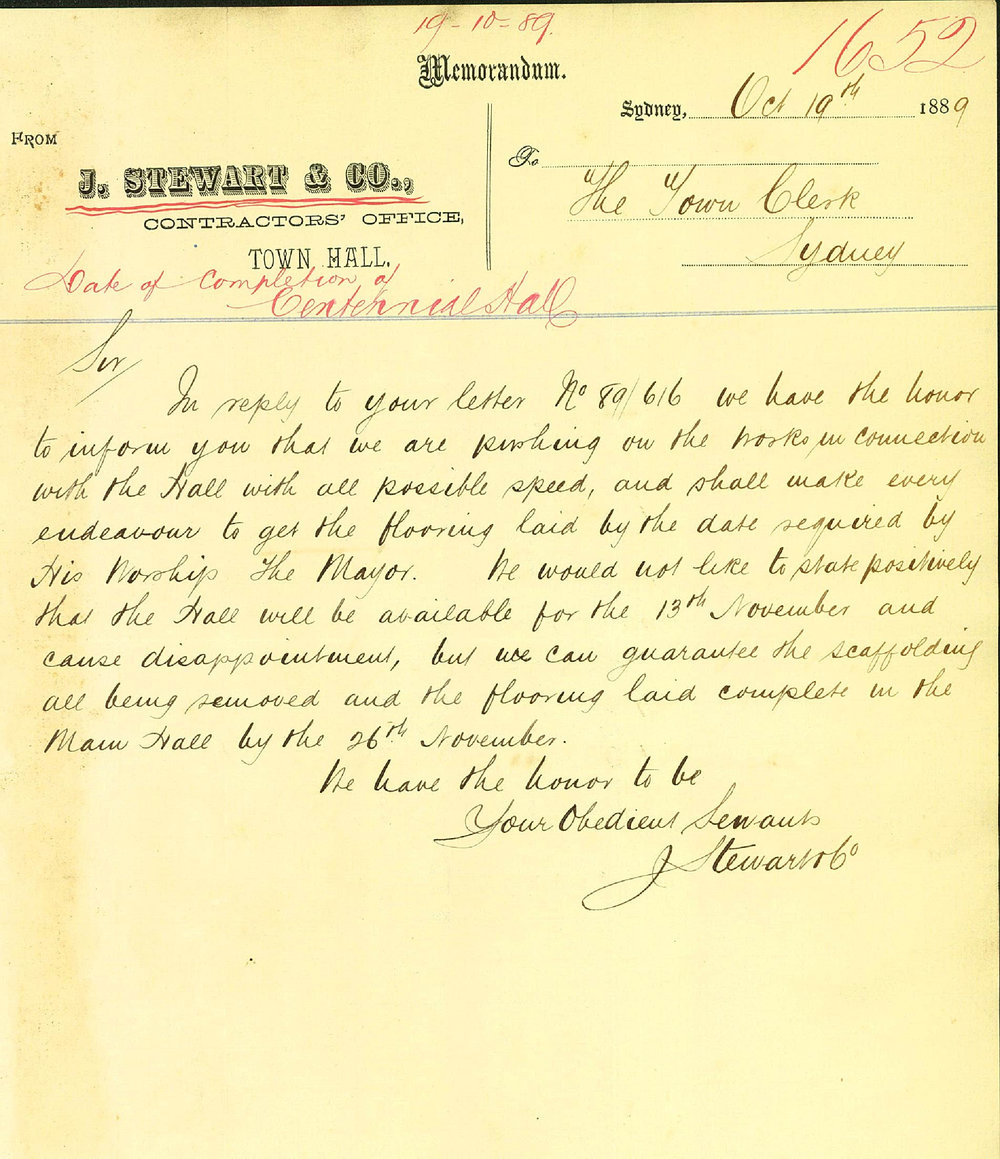 19-10-89.
1652
Memorandum.
Sydney, Oct 19th 1889
FROM
J. STEWART & CO.,
CONTRACTORS' OFFICE,
TOWN HALL.
To
The Town Clerk
Sydney
Date of Completion of
Centennial Hall
Sir/
In reply to your letter No 89/616 we have the honor
to inform you that we are pushing on the works in connection
with the Hall with all possible speed, and shall make every
endeavour to get the flooring laid by the date required by
His Worship the Mayor. We would not like to state positively
that the Hall will be available for the 13th November and
cause disappointment, but we can guarantee the scaffolding
all being removed and the flooring laid complete in the
Main Hall by the 26th November.
We have the honor to be
Your Obedient Servants
J Stewart & Co